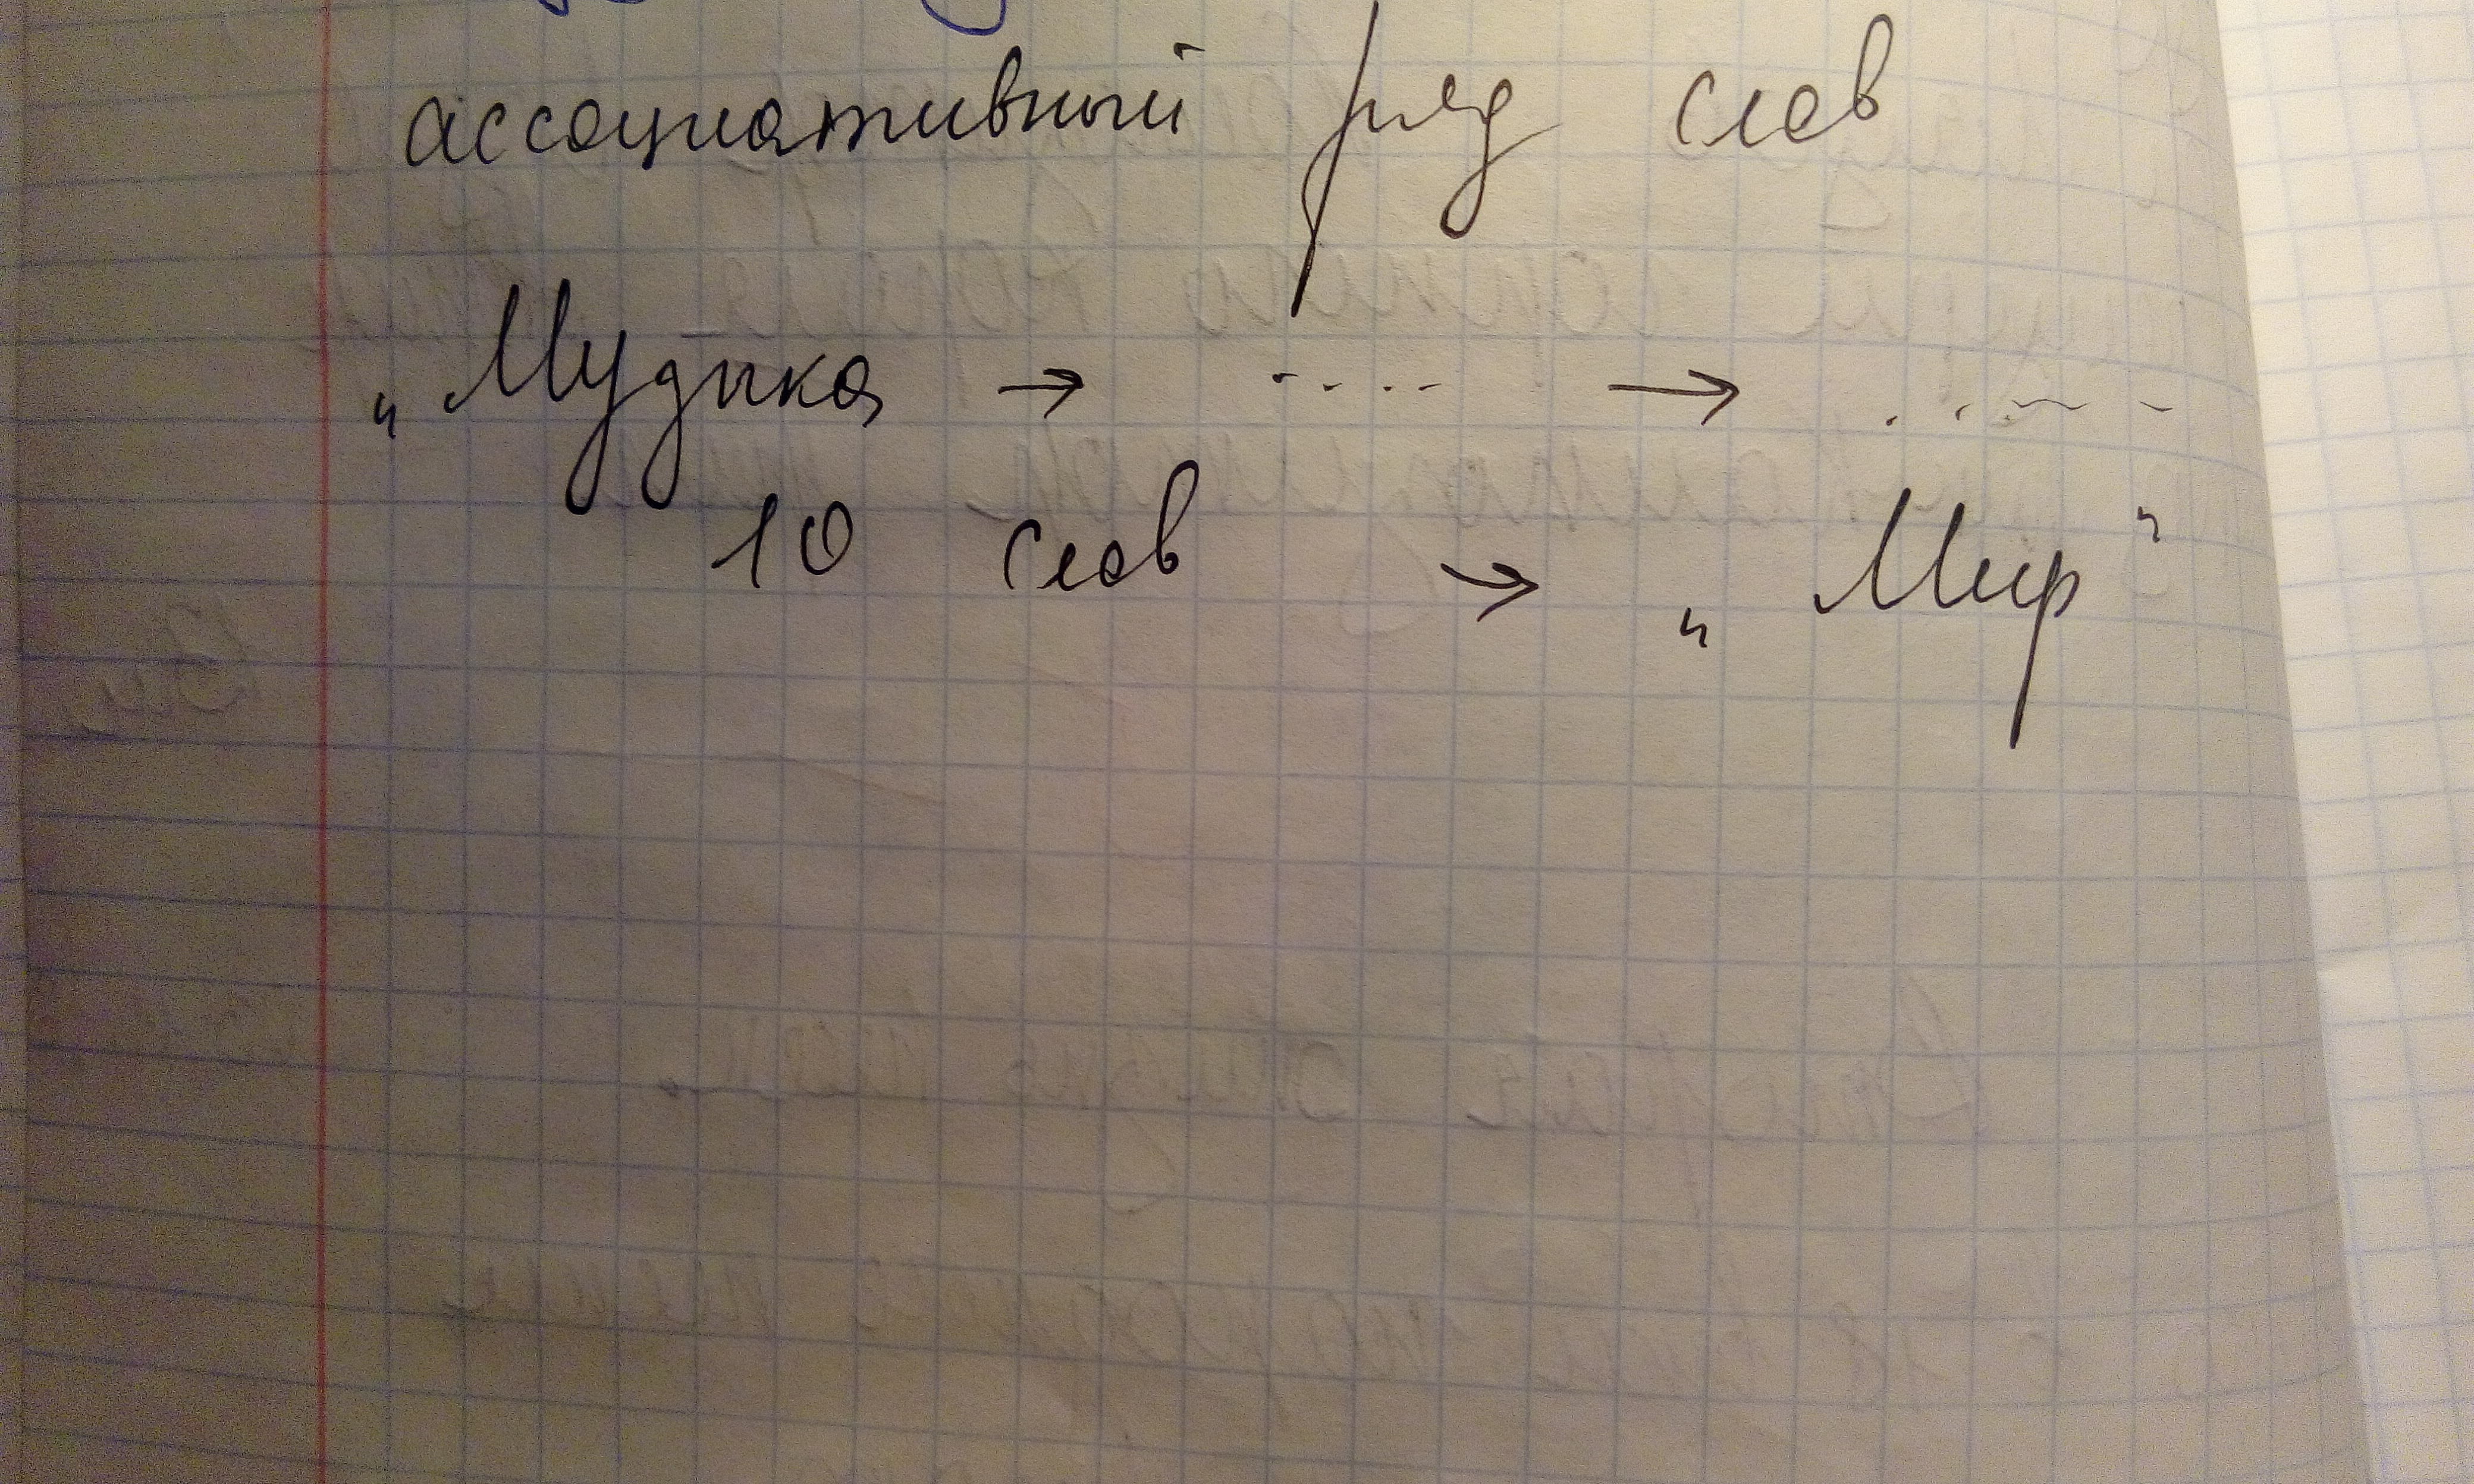 ассоциативный ряд слов
„Музыка → ..... → .....
10 слов → „Мир"